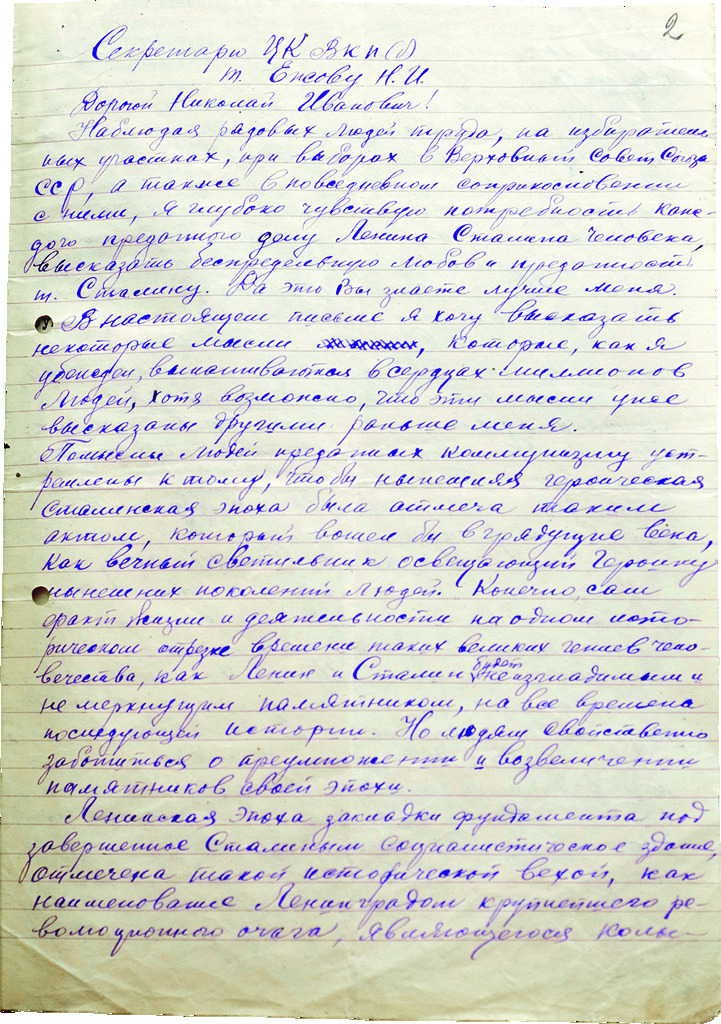 2
Секретарю ЦК ВКП(б)
т. Ежову Н.И.
Дорогой Николай Иванович!
Наблюдая рядовых людей труда, на избиратель-
ных участках, при выборах в Верховный Совет Союза
ССР, а также в повседневном соприкосновении
с ними, я глубоко чувствую потребность каж-
дого преданного делу Ленина Сталина человека,
высказать беспредельную любов и преданность
т. Сталину. Да это Вы знаете лучше меня.
В настоящем письме я хочу высказать
некоторые мысли , которые, как я
убежден, вынашиваются в сердцах миллионов
людей, хотя возможно, что эти мысли уже
высказаны другими раньше меня.
Помыслы людей преданых коммунизму уст-
ремлены к тому, чтобы нынешняя героическая
Сталинская эпоха была отмеча таким
актом, который вошел бы в грядущие века,
как вечный светильник освещающий героику
нынешних поколений людей. Конечно, сам
факт жизни и деятельности на одном исто-
рическом отрезке времени таких великих гениев чело-
вечества, как Ленин и Сталин будет неизгладимым и
не меркнущим памятником, на все времена
последующей истории. Но людям свойственно
заботиться о преумножении и возвеличении
памятников своей эпохи.
Ленинская эпоха закладки фундамента под
завершенное Сталиным социалистическое здание,
отмечена такой исторической вехой, как
наименование Ленинградом крупнейшего ре-
волюционного очага, являющегося колы-